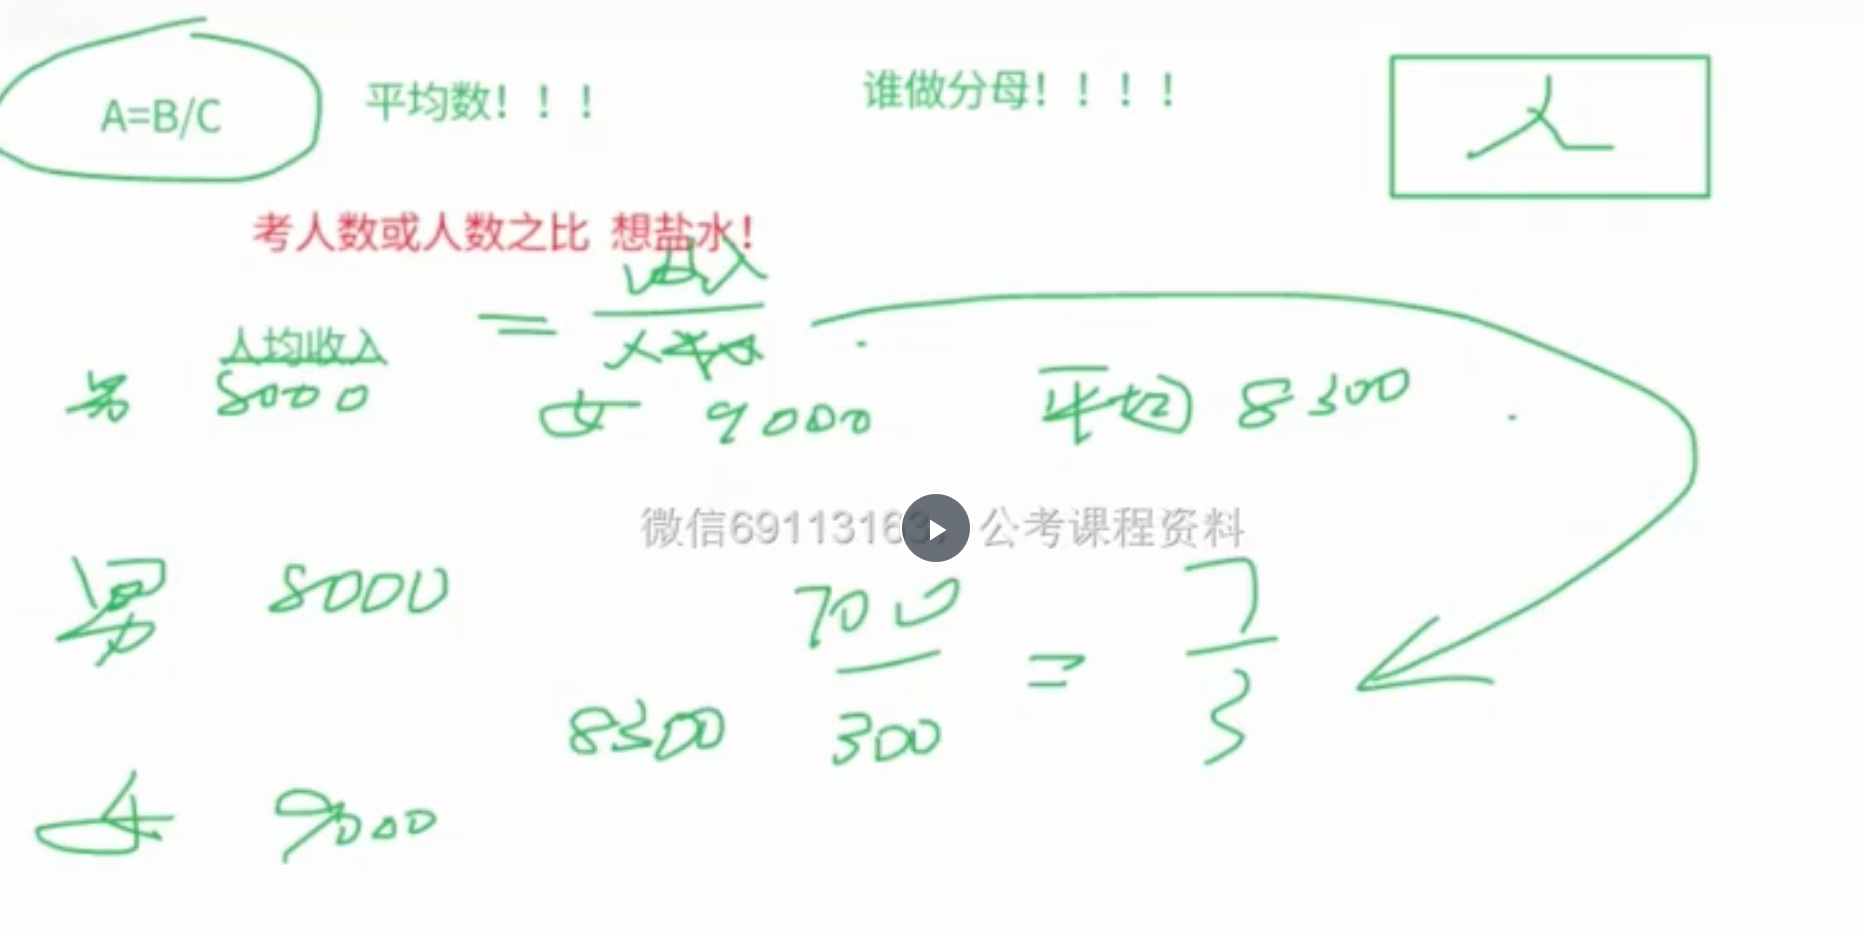 A=B/C 平均数！！！ 谁做分母！！！！
人
考人数或人数之比 想盐水！
人均收入 = 收入
人数
男 8000 女 9000 平均 8300
微信69113163，公考课程资料
男 8000
700 = 7
8300 300 3
女 9000